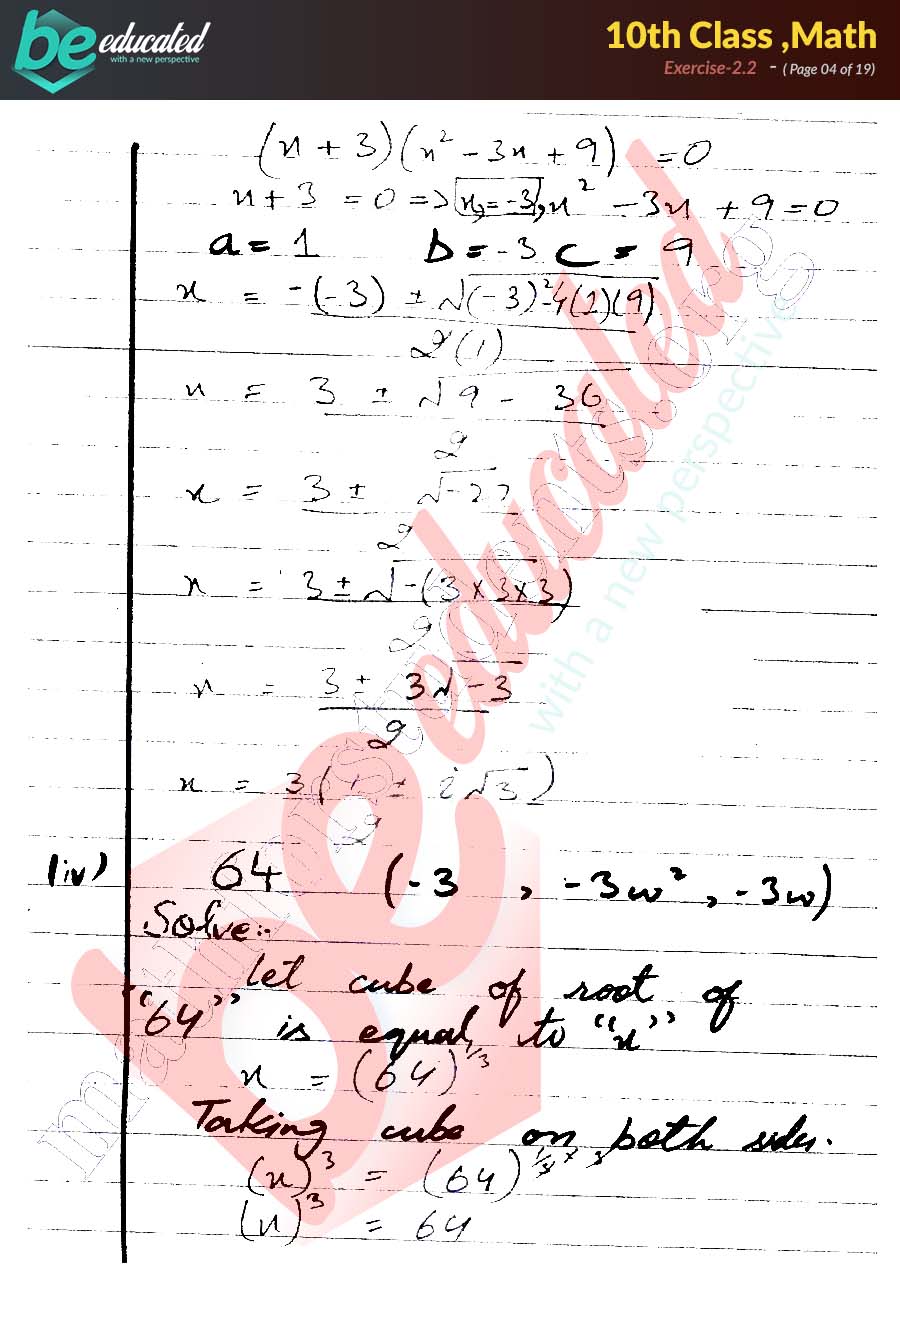 be educated
with a new perspective
10th Class ,Math
Exercise-2.2 - ( Page 04 of 19)
(x + 3)(x² - 3x + 9) = 0
x + 3 = 0 => x = -3, x² - 3x + 9 = 0
a = 1 b = -3 c = 9
x = -(-3) ± √(-3)²-4(1)(9)
2(1)
x = 3 ± √9 - 36
2
x = 3 ± √-27
2
x = 3 ± √-(3×3×3)
2
x = 3 ± 3√-3
2
x = 3(1 ± i√3)
2
(iv) 64 (-3 , -3w², -3w)
Solve:-
Let cube of root of
"64" is equal to "x"
x = (64)^1/3
Taking cube on both sides.
(x)³ = (64)^1/3 × 3
(x)³ = 64
be educated
with a new perspective